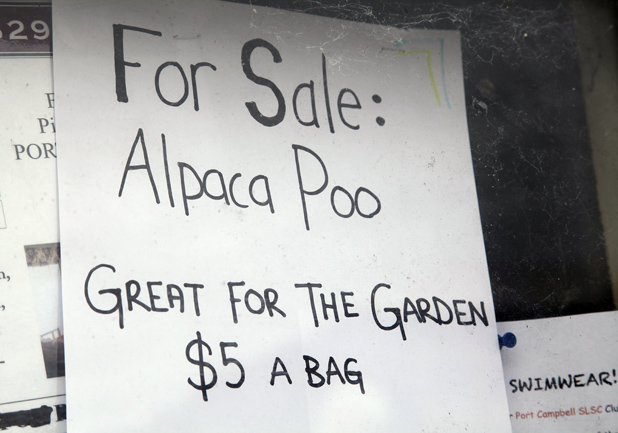 29
For Sale:
Alpaca Poo
GREAT FOR THE GARDEN
$5 A BAG
POR
SWIMWEAR!
- Port Campbell SLSC Clu